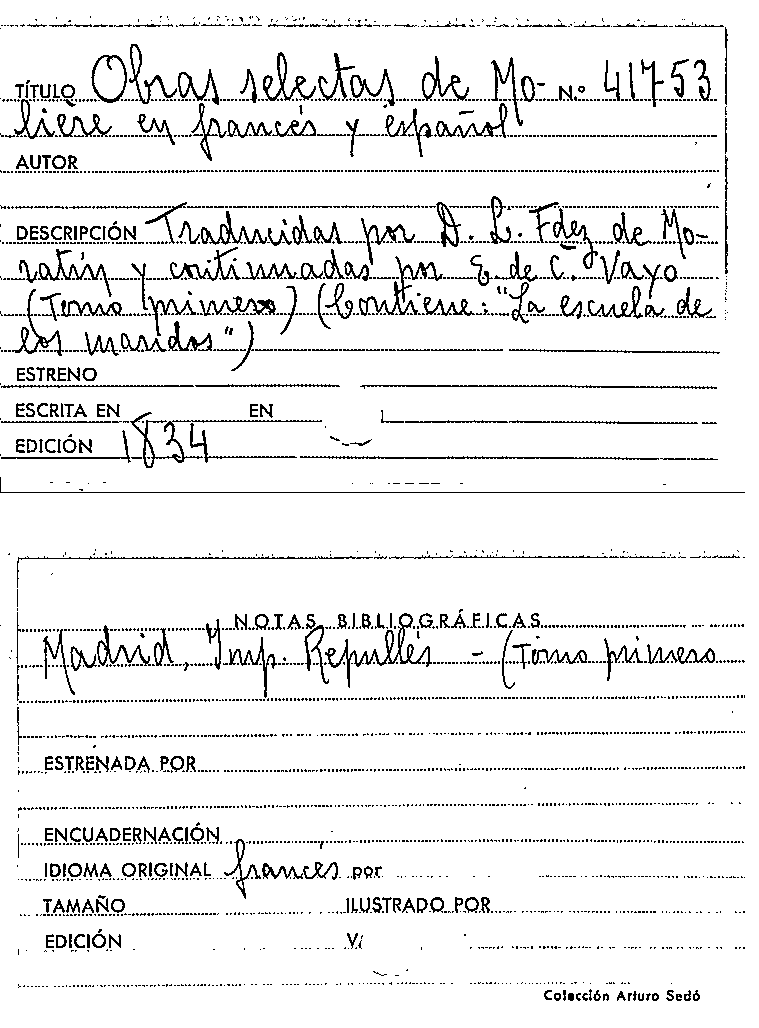 TÍTULO Obras selectas de Mo- N.º 41753
lière en francés y español
AUTOR
DESCRIPCIÓN Traducidas por D. L. Fdez de Mo-
ratín y continuadas por E. de C. Vayo
(Tomo primero) (Contiene: "La escuela de
los maridos")
ESTRENO
ESCRITA EN EN
EDICIÓN 1834
NOTAS BIBLIOGRÁFICAS
Madrid, Imp. Repullés - (Tomo primero
ESTRENADA POR
ENCUADERNACIÓN
IDIOMA ORIGINAL francés por
TAMAÑO ILUSTRADO POR
EDICIÓN
Colección Arturo Sedó